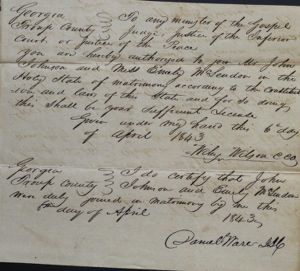 Georgia To any minister of the Gospel
Troup County Judge Justice of the Inferior
Court or Justice of the Peace
You are hereby authorized to join Mr John
Johnson and Miss Emily McLendon in the
Holy State of matrimony according to the Constitut
ion and laws of this State and for so doing
this shall be your sufficient License
Given under my hand this 6 day
of April 1843
Wilson CCO
Georgia I do certify that John
Troup County Johnson and Emily McLendon
were duly joined in matrimony by me this
day of April 1843
Daniel Ware